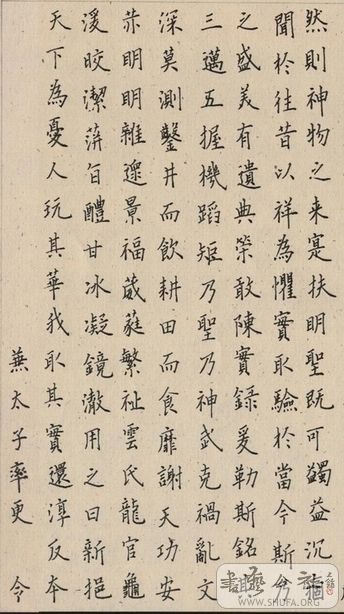 然則神物之来寔扶明聖既可蠲益沉痼
聞於往昔以祥為懼實取驗於當今斯乃
之盛美有遺典策敢陳實録爰勒斯銘
三邁五握機蹈矩乃聖乃神武克禍亂文
深莫測鑿井而飲耕田而食靡謝天功安
明明雜遝景福葳蕤繁祉雲氏龍官龜
湲皎潔蓱旨醴甘冰凝鏡澈用之日新挹
天下為憂人玩其華我取其實還淳反本
兼太子率更令
WWW.SHUFA.ORG